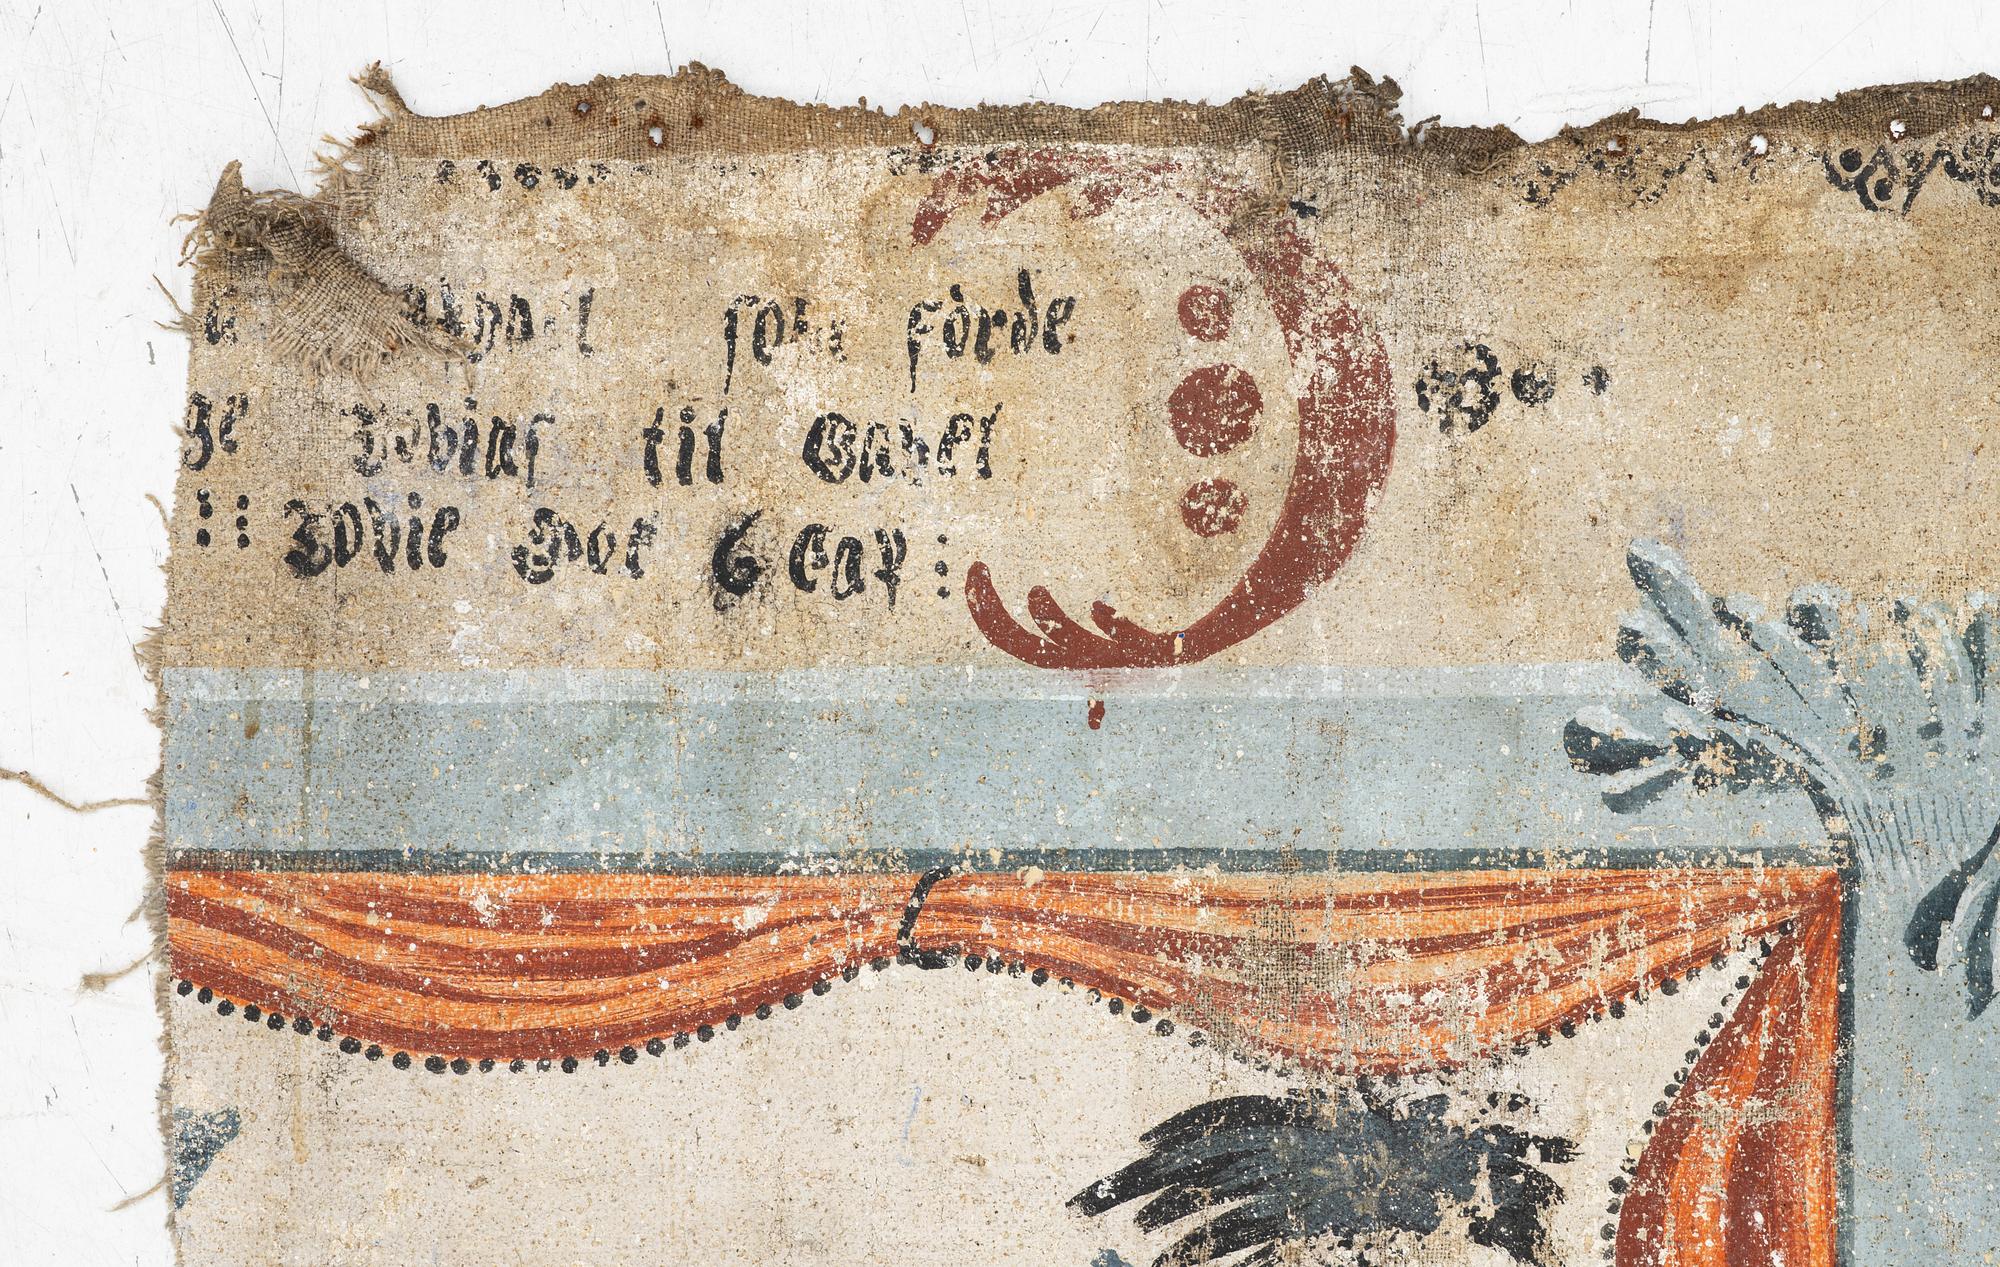 som förde
ge Tobias til Gabel
:: Tobie Boc 6 Cap :